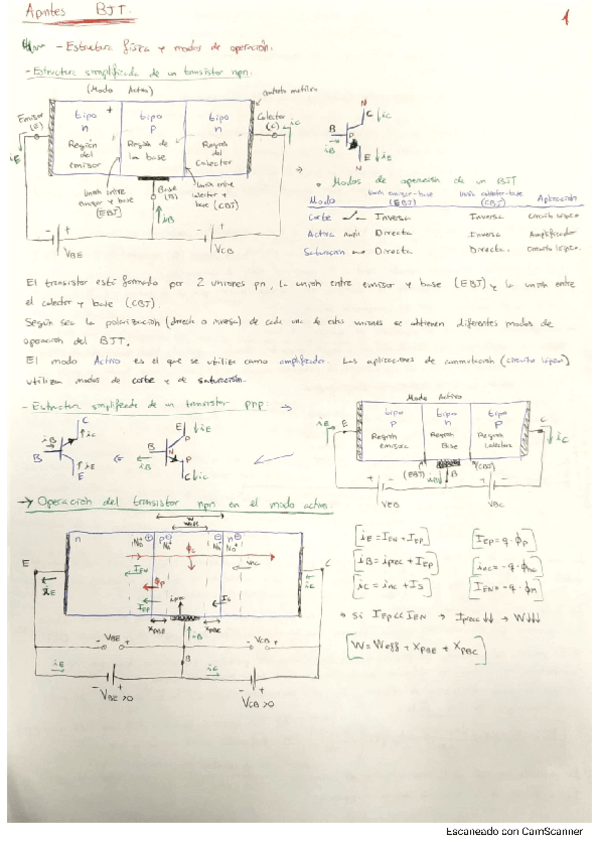 Apuntes BJT.
1
- Estructura física y modos de operación.
- Estructura simplificada de un transistor npn.
(Modo Activo)
contacto metálico
Emisor (E)
tipo n
Región del emisor
tipo P
Región de la base
tipo n
Región Colector
Colector (C)
iE
iC
Unión entre emisor y base (EBJ)
Base (B)
Unión entre colector y base (CBJ)
iB
VBE
VCB
N
C
iC
B
P
iB
E
iE
N
• Modos de operación de un BJT
Modo Unión emisor-base (EBJ) Unión colector-base (CBJ) Aplicación
Corte Inversa Inversa circuito lógico
Activa Directa Inversa Amplificador
Saturación Directa Directa. circuito lógico.
El transistor está formado por 2 uniones pn, la unión entre emisor y base (EBJ) y la unión entre
el colector y base (CBJ).
Según sea la polarización (directa o inversa) de cada una de estas uniones se obtienen diferentes modos de
operación del BJT.
El modo Activo es el que se utiliza como amplificador. Las aplicaciones de conmutación (circuito lógico)
utilizan modos de corte y de saturación.
- Estructura simplificada de un transistor pnp. →
Modo Activo
iE E
tipo P
Región Emisora
tipo n
Región Base
tipo P
Región Colector
C iC
(EBJ)
iB
B
(CBJ)
VEB
VBC
C
iC
iB
B
iE
E
E
iE
P
B
N
iB
P
C
iC
→ Operación del transistor npn en el modo activo.
W
Weff
n
P
n
E
C
IEN
IEP
ϕp
inc
IS
iE
iC
XPBE
XPBC
iB
B
- VBE +
- VCB +
iE
iC
VBE > 0
VCB > 0
[iE = IEN + IEP]
[iB = iprec + IEP]
[iC = inc + IS]
[IEP = q · ϕp]
[inc = -q · ϕnc]
[IEN = -q · ϕn]
→ Si IEP << IEN → Iprec ↓↓ → W ↓↓↓
[W = Weff + XPBE + XPBC]
Escaneado con CamScanner